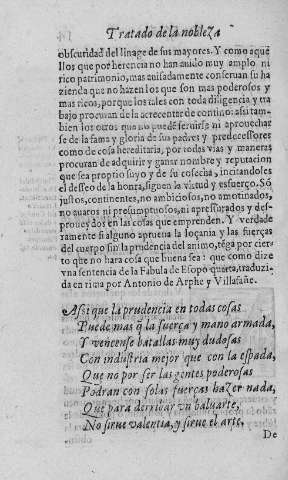 Tratado de la nobleza
obscuridad del linage de sus mayores. Y como aque
llos que por herencia no han auido muy amplo ni
rico patrimonio, mas auisadamente conseruan su ha
zienda que no hazen los que son mas poderosos y
mas ricos, porque los tales con toda diligencia y tra
bajo procuran de la acrecentar de contino: assi tam-
bien los otros que no puedẽ seruirse ni aprouechar
se de la fama y gloria de sus padres y predecessores
como de cosa hereditaria, por todas vias y maneras
procuran de adquirir y ganar nombre y reputacion
que sea proprio suyo y de su cosecha, incitandoles
el desseo de la honra, siguen la virtud y esfuerço. Sõ
justos, continentes, no ambiciosos, no amotinados,
no auaros ni presumptuosos, ni apressurados y des-
proueydos en las cosas que emprenden. Y verdade
ramente si alguno aprueua la loçania y las fuerças
del cuerpo sin la prudencia del animo, tẽga por cier
to que no hara cosa que buena sea: que como dize
vna sentencia de la Fabula de Esopo quarta, traduzi-
da en rima por Antonio de Arphe y Villafañe.
Assi que la prudencia en todas cosas
Puede mas q̃ la fuerça y mano armada,
Y vencense batallas muy dudosas
Con industria mejor que con la espada,
Que no por ser las gentes poderosas
Podran con solas fuerças hazer nada,
Que para derribar vn baluarte,
No sirue valentia, y sirue el arte.
De